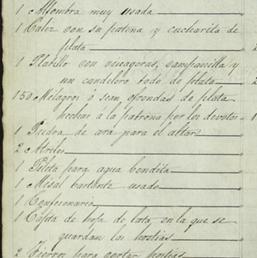 1 Alfombra muy usada
1 Caliz con su patena y cucharita de
plata
1 Platillo con vinageras, campanilla y
un candelero todo de plata
150 Milagros ó sean ofrendas de plata
hechas á la patrona por los devotos
1 Piedra de ara para el altar
2 Atriles
1 Pileta para agua bendita
1 Misal bastante usado
1 Confesonario
1 Cajita de hoja de lata, en la que se
guardan las hostias
2 para cortar hostias